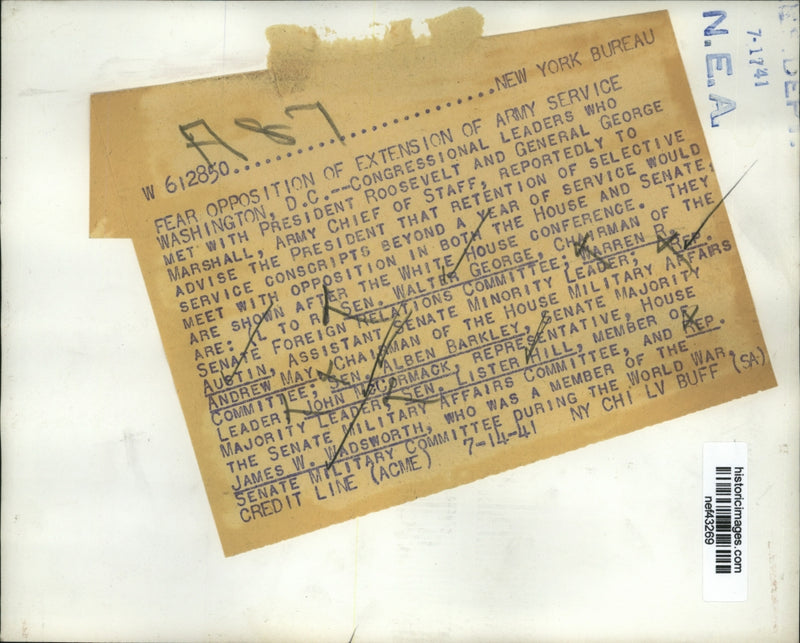 N.E.A
7-1741
DEPT.
A87
NEW YORK BUREAU
W 612850
FEAR OPPOSITION OF EXTENSION OF ARMY SERVICE
WASHINGTON, D.C.--CONGRESSIONAL LEADERS WHO
MET WITH PRESIDENT ROOSEVELT AND GENERAL GEORGE
MARSHALL, ARMY CHIEF OF STAFF, REPORTEDLY TO
ADVISE THE PRESIDENT THAT RETENTION OF SELECTIVE
SERVICE CONSCRIPTS BEYOND A YEAR OF SERVICE WOULD
MEET WITH OPPOSITION IN BOTH THE HOUSE AND SENATE,
ARE SHOWN AFTER THE WHITE HOUSE CONFERENCE. THEY
ARE: (L TO R) SEN. WALTER GEORGE, CHAIRMAN OF THE
SENATE FOREIGN RELATIONS COMMITTEE; WARREN R.
AUSTIN, ASSISTANT SENATE MINORITY LEADER; REP.
ANDREW MAY, CHAIRMAN OF THE HOUSE MILITARY AFFAIRS
COMMITTEE; SEN. ALBEN BARKLEY, SENATE MAJORITY
LEADER; JOHN McCORMACK, REPRESENTATIVE, HOUSE
MAJORITY LEADER; SEN. LISTER HILL, MEMBER OF
THE SENATE MILITARY AFFAIRS COMMITTEE, AND REP.
JAMES W. WADSWORTH, WHO WAS A MEMBER OF THE
SENATE MILITARY COMMITTEE DURING THE WORLD WAR.
CREDIT LINE (ACME) 7-14-41 NY CHI LV BUFF (SA)
historicimages.com
nef43269